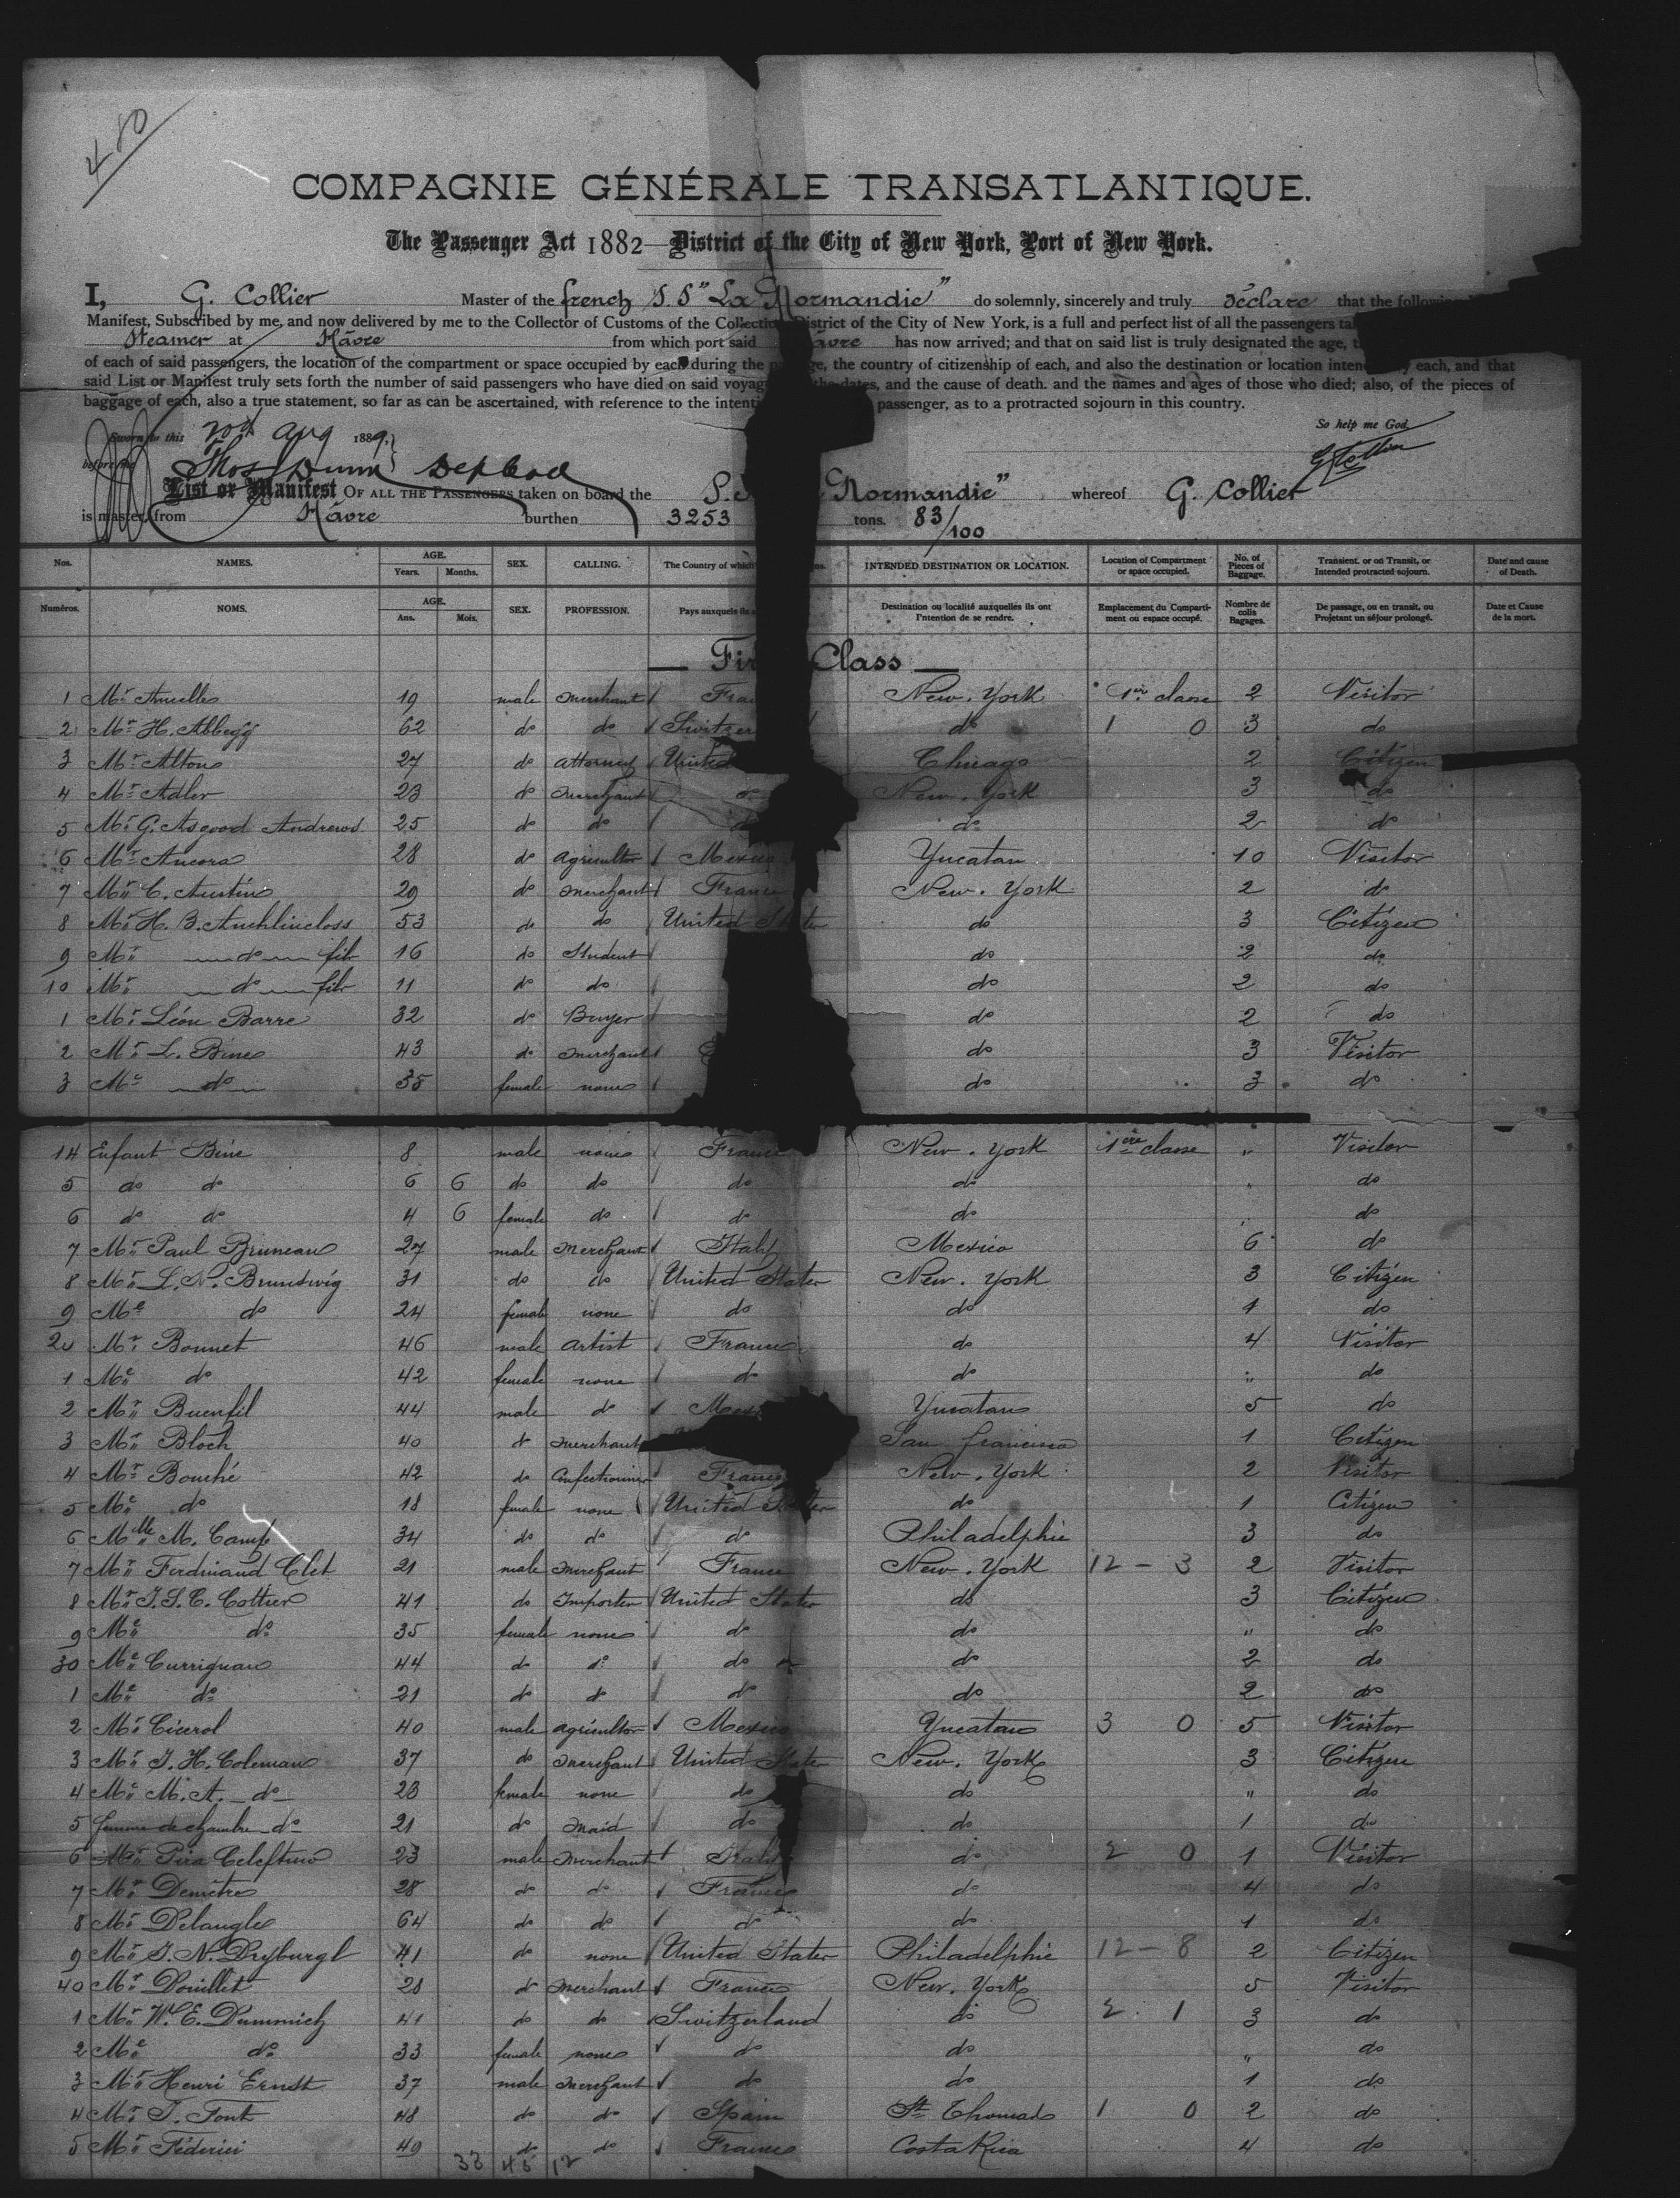 480
COMPAGNIE GÉNÉRALE TRANSATLANTIQUE.
The Passenger Act 1882—District of the City of New York, Port of New York.
I, G. Collier Master of the french S.S "La Normandie" do solemnly, sincerely and truly declare that the following
Manifest, Subscribed by me, and now delivered by me to the Collector of Customs of the Collection District of the City of New York, is a full and perfect list of all the passengers
Steamer at Hâvre from which port said has now arrived; and that on said list is truly designated the age,
of each of said passengers, the location of the compartment or space occupied by each during the passage, the country of citizenship of each, and also the destination or location each, and that
said List or Manifest truly sets forth the number of said passengers who have died on said the dates, and the cause of death. and the names and ages of those who died; also, of the pieces of
baggage of each, also a true statement, so far as can be ascertained, with reference to the passenger, as to a protracted sojourn in this country.
So help me God.
Sworn to this Aug 1889,
before me Thos Dunn
G Collier
List or Manifest OF ALL THE PASSENGERS taken on board the Normandie" whereof G. Collier
is master, from Hâvre burthen 3253 tons. 83/100
Nos. NAMES. AGE. Years. Months. SEX. CALLING. The Country of which INTENDED DESTINATION OR LOCATION. Location of Compartment or space occupied. No. of Pieces of Baggage. Transient, or on Transit, or Intended protracted sojourn. Date and cause of Death.
Numéros. NOMS. AGE. Ans. Mois. SEX. PROFESSION. Pays auxquels ils Destination ou localité auxquelles ils ont l'intention de se rendre. Emplacement du Compartiment ou espace occupé. Nombre de colis Bagages. De passage, ou en transit, ou Projetant un séjour prolongé. Date et Cause de la mort.
Class
1 Mr 19 male merchant New. York 1ère classe 2 Visitor
2 Mr H. Abbegg 62 do do do 1 0 3 do
3 Mr 27 do attorney United Chicago 2 Citizen
4 Mr Adler 23 do merchant do New. York 3 do
5 Mr G. Asgood Andrews 25 do do do do 2 do
6 Mr Ancora 28 do agricultor Mexico Yucatan 10 Visitor
7 Mr C. Austin 29 do merchant France New. York 2 do
8 Mr H. B. Auchlincloss 53 do do United do 3 Citizen
9 Mr do fils 16 do Student do 2 do
10 Mr do fils 11 do do do 2 do
1 Mr Léon Barre 32 do Buyer do 2 do
2 Mr L. Bine 43 do merchant do 3 Visitor
3 Me do 35 female none do 3 do
14 Enfant Bine 8 male none France New. York 1ère classe " Visitor
5 do do 6 6 do do do do " do
6 do do 4 6 female do do do do
7 Mr Paul Bruneau 27 male Merchant Italy Mexico 6 do
8 Mr L. N. Brunswig 31 do do United States New. York 3 Citizen
9 Me do 24 female none do do 1 do
20 Mr Bonnet 46 male artist France do 4 Visitor
1 Me do 42 female none do do " do
2 Mr Buenfil 44 male do Yucatan 5 do
3 Mr Bloch 40 do merchant San francisco 1 Citizen
4 Mr Bouché 42 do Confectioner France New. York 2 Visitor
5 Me do 18 female none United States do 1 Citizen
6 Mlle M. Camp 34 do do do Philadelphie 3 do
7 Mr Ferdinand Clet 21 male merchant France New. York 12 - 3 2 Visitor
8 Mr J. S. C. Cottier 41 do Importer United States do 3 Citizen
9 Me do 35 female none do do " do
30 Me Currignan 44 do do do do 2 do
1 Me do 21 do do do do 2 do
2 Mr Cicerol 40 male agricultor Mexico Yucatan 3 0 5 Visitor
3 Mr J. H. Coleman 37 do merchant United States New. York 3 Citizen
4 Me M. A. do 23 female none do do " do
5 femme de chambre do 21 do maid do do 1 do
6 Mr Pira Celeftino 23 male merchant Italy do 2 0 1 Visitor
7 Mr Demetre 28 do do France do 4 do
8 Mr Delangle 64 do do do do 1 do
9 Mr J. N. Dryburgh 41 do none United States Philadelphie 12 - 8 2 Citizen
40 Mr Douillet 28 do merchant France New. York 5 Visitor
1 Mr W. E. Dummich 41 do do Switzerland do 2 1 3 do
2 Me do 33 female none do do " do
3 Mr Henri Ernst 37 male merchant do do 1 do
4 Mr J. Font 48 do do Spain St Thomas 1 0 2 do
5 Mr Féderici 49 do do France Costa Rica 4 do
33 45 12